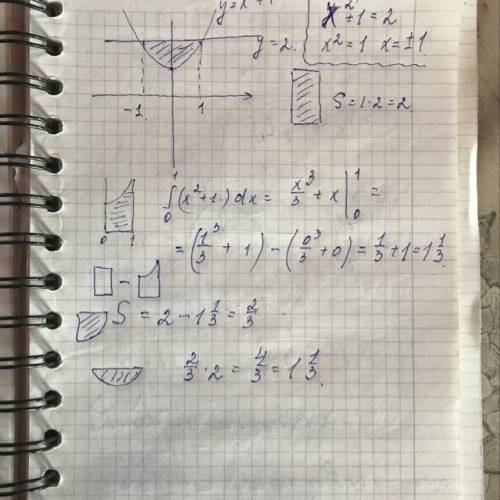 y=x²+1
x²+1=2
y=2.
x²=1 x=±1
-1 1
S=1·2=2.
0 1
∫₀¹(x²+1)dx= x³/3+x|₀¹=
=(1³/3+1)-(0³/3+0)=1/3+1=1 1/3.
S=2-1 1/3=2/3
2/3·2=4/3=1 1/3.